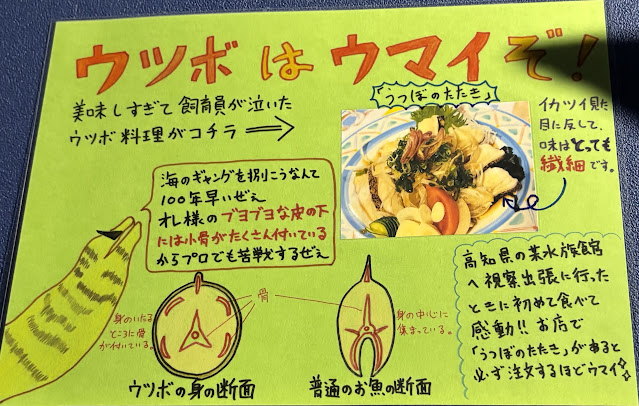 ウツボはウマイぞ!
美味しすぎて飼育員が泣いた
ウツボ料理がコチラ
「うつぼのたたき」
イカツイ見た
目に反して、
味はとっても
繊細です。
海のギャングを捌こうなんて
100年早いぜぇ
オレ様のブヨブヨな皮の下
には小骨がたくさん付いている
からプロでも苦戦するぜぇ
身のいたる
ところに骨
が付いている。
骨
身の中心に
集まっている。
ウツボの身の断面
普通のお魚の断面
高知県の某水族館
へ視察出張に行った
ときに初めて食べて
感動!!お店で
「うつぼのたたき」があると
必ず注文するほどウマイ